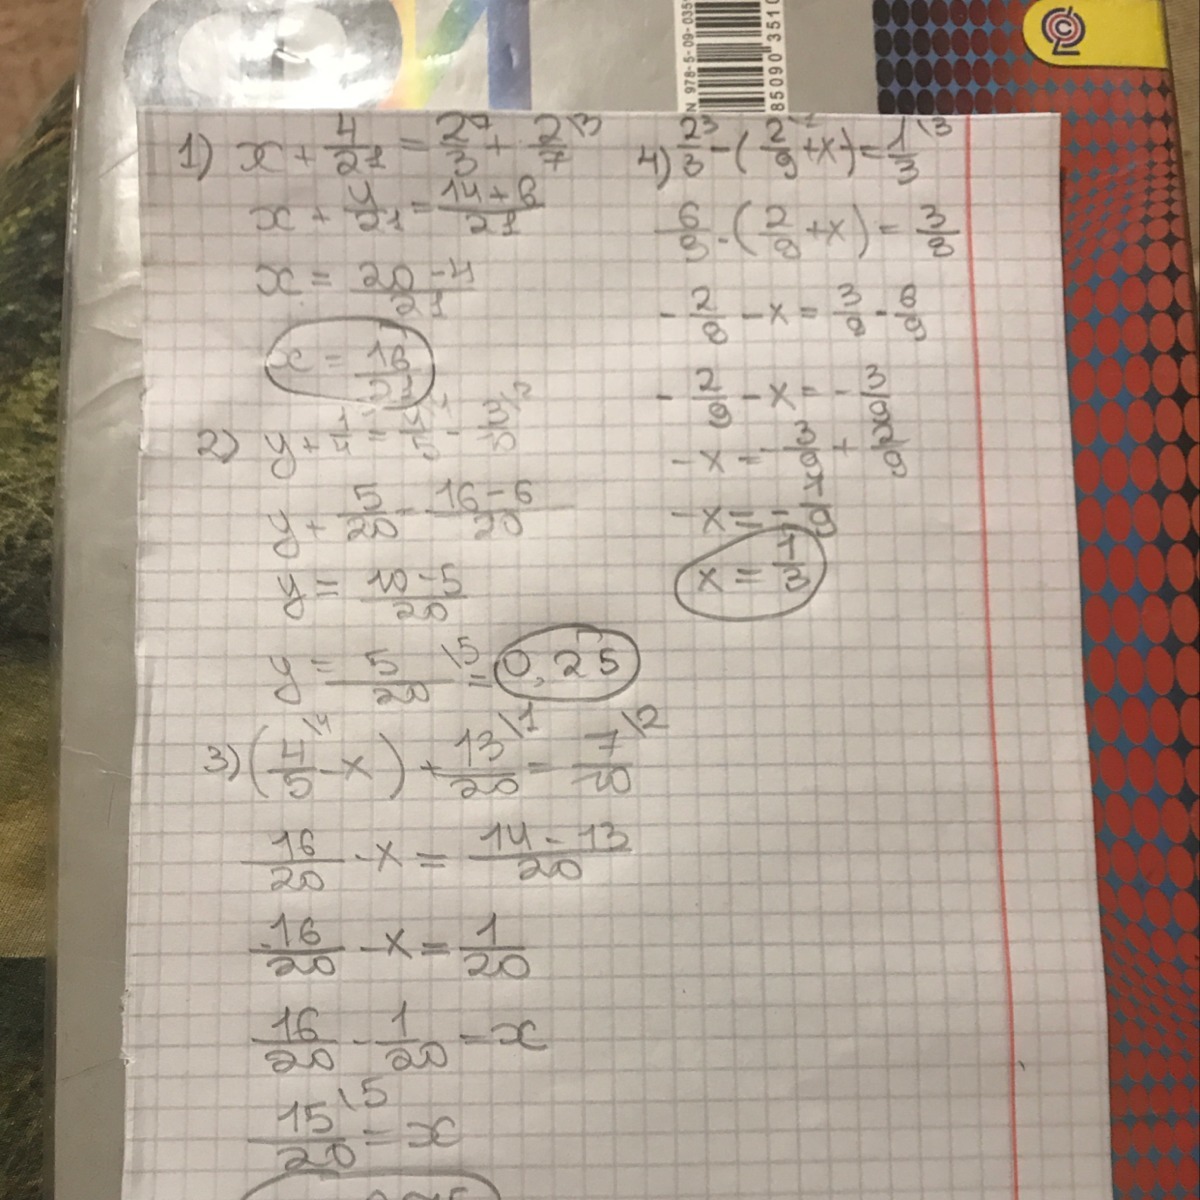 N 978-5-09-035
85090 3510
1) x + 4/21 = 2\7/3 + 2\3/7
x + 4/21 = 14+6/21
x = 20-4/21
x = 16/21
2) y + 1/4 = 4/5 - 3\2/10
y + 5/20 = 16-6/20
y = 10-5/20
y = 5\5/20 = 0,25
3) (4\4/5 - x) + 13\1/20 = 7\2/10
16/20 - x = 14-13/20
16/20 - x = 1/20
16/20 - 1/20 = x
15\5/20 = x
4) 2\3/3 - (2\1/9 + x) = 1\3/3
6/9 - (2/9 + x) = 3/9
- 2/9 - x = 3/9 - 6/9
- 2/9 - x = - 3/9
- x = - 3/9 + 2/9
- x = - 1/9
x = 1/3